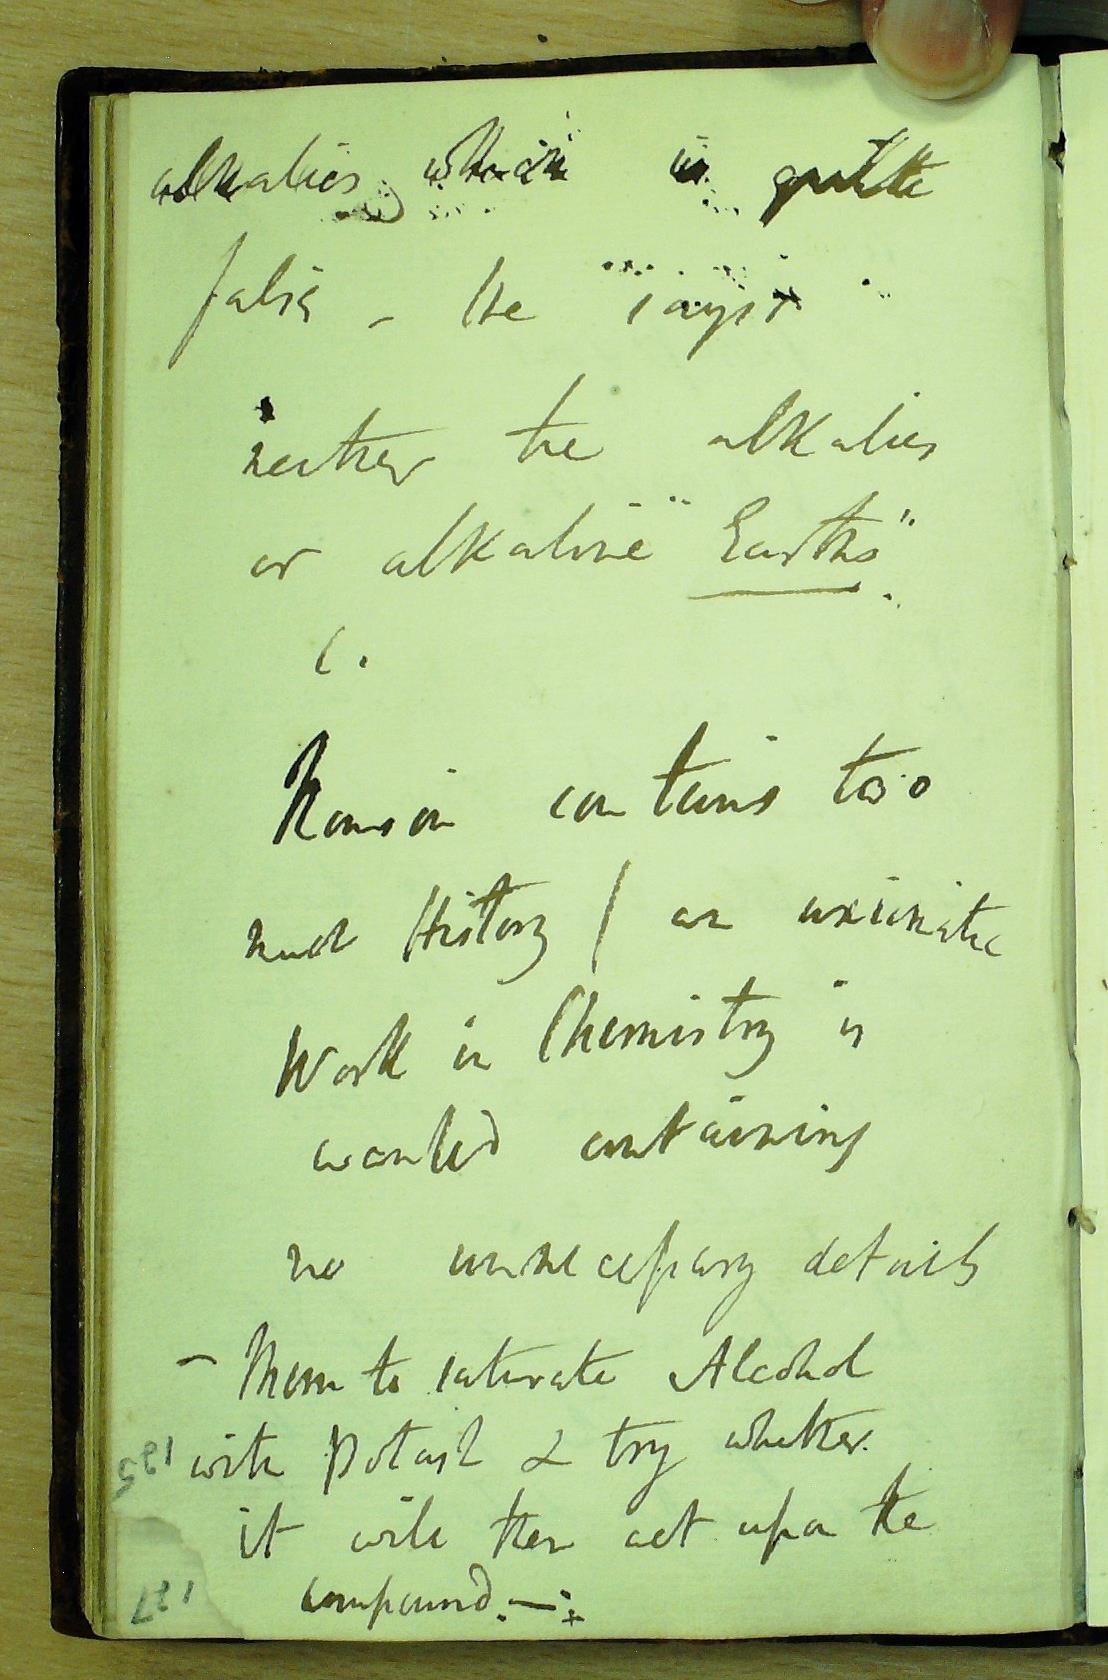 alkalies which is quite
false - He says
neither the alkalies
or alkaline "Earths".
Thomson contains too
much History / an
Work in Chemistry is
wanted containing
no unnecessary details
- Mem to saturate Alcohol
with Potash & try whether
it will then act upon the
compound. -
135
137